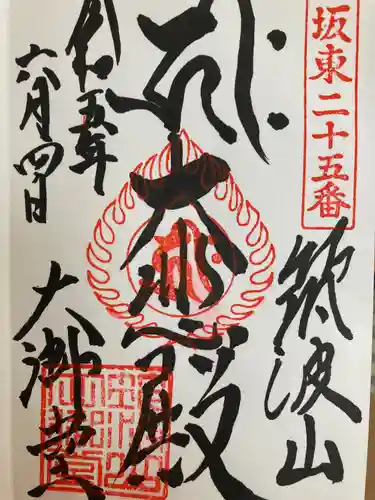 坂東二十五番
筑波山
大悲殿
大御堂
令和五年
六月四日